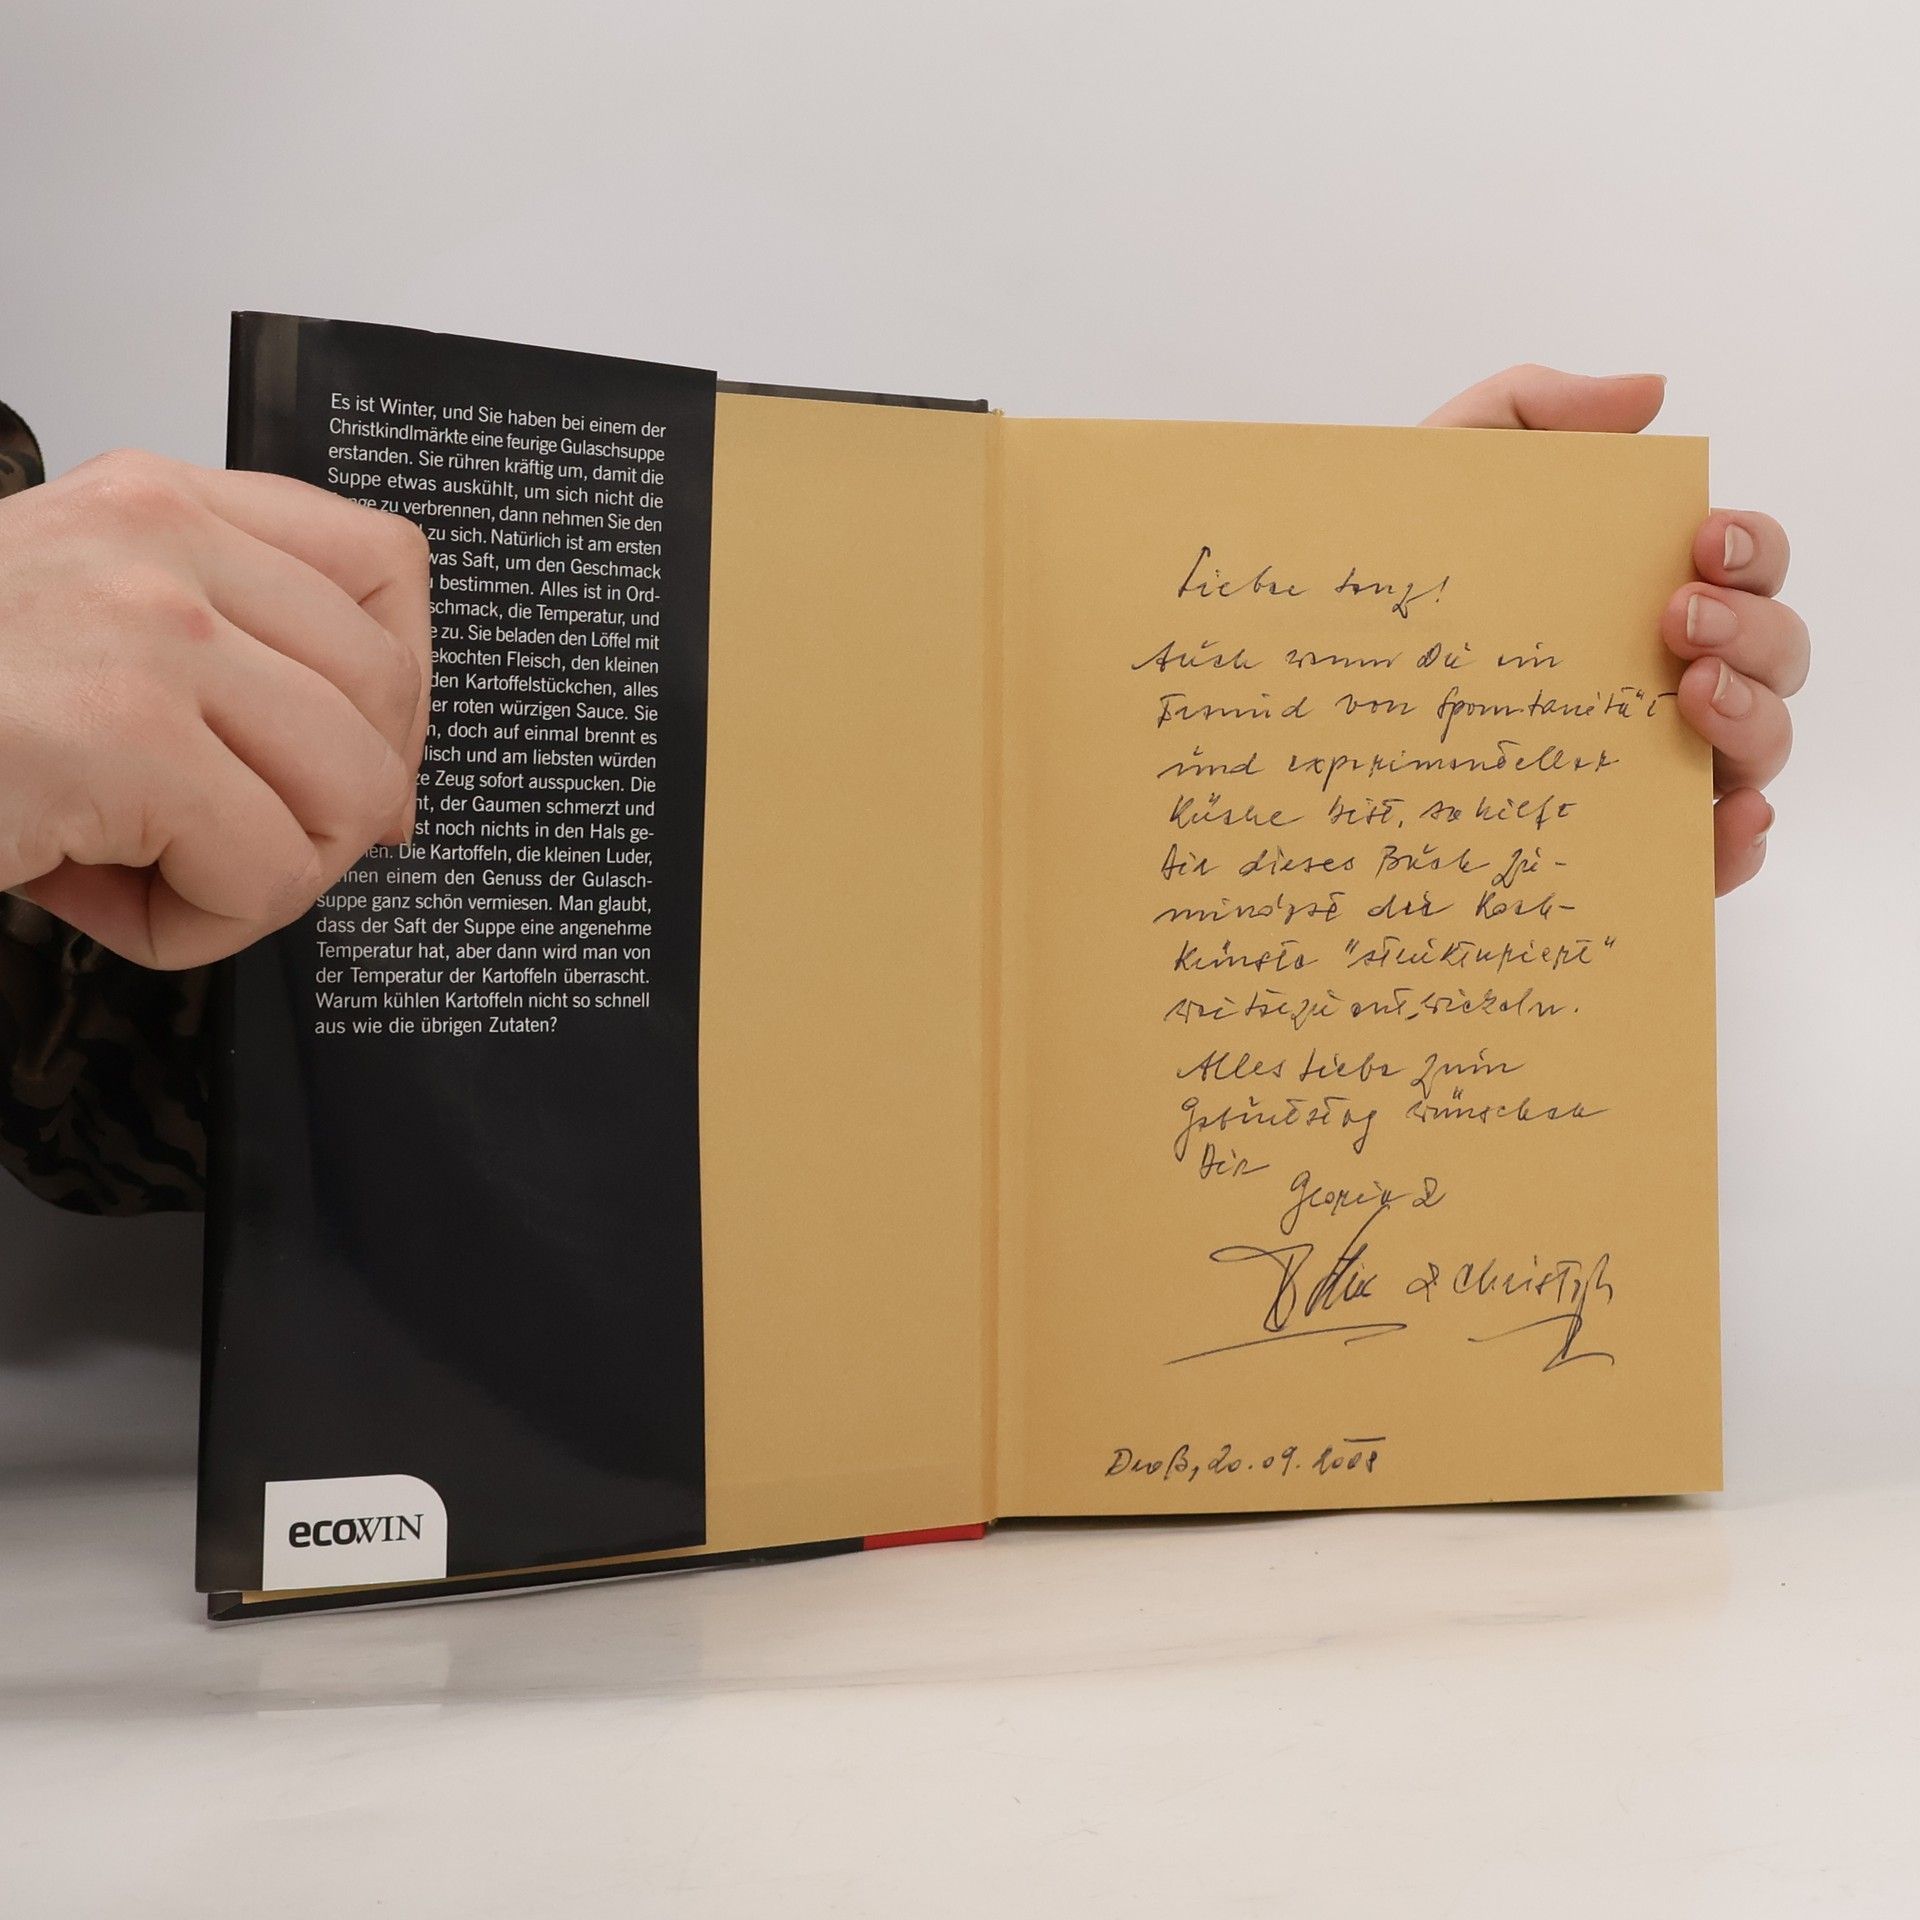 Es ist Winter, und Sie haben bei einem der
Christkindlmärkte eine feurige Gulaschsuppe
erstanden. Sie rühren kräftig um, damit die
Suppe etwas auskühlt, um sich nicht die
zu verbrennen, dann nehmen Sie den
zu sich. Natürlich ist am ersten
was Saft, um den Geschmack
bestimmen. Alles ist in Ord-
schmack, die Temperatur, und
zu. Sie beladen den Löffel mit
ekochten Fleisch, den kleinen
den Kartoffelstückchen, alles
er roten würzigen Sauce. Sie
, doch auf einmal brennt es
lisch und am liebsten würden
Zeug sofort ausspucken. Die
, der Gaumen schmerzt und
st noch nichts in den Hals ge-
en. Die Kartoffeln, die kleinen Luder,
nnen einem den Genuss der Gulasch-
suppe ganz schön vermiesen. Man glaubt,
dass der Saft der Suppe eine angenehme
Temperatur hat, aber dann wird man von
der Temperatur der Kartoffeln überrascht.
Warum kühlen Kartoffeln nicht so schnell
aus wie die übrigen Zutaten?
ecoWIN
Lieber
Auch wenn Du ein
Freund von Spontanität
und experimenteller
Küche bist, so hilft
Dir dieses Buch zu-
mindest die Koch-
künste "strukturiert"
weiterzuentwickeln.
Alles Liebe zum
Geburtstag wünschen
Dir
&
& Christoph
Droß, 20.09.2008